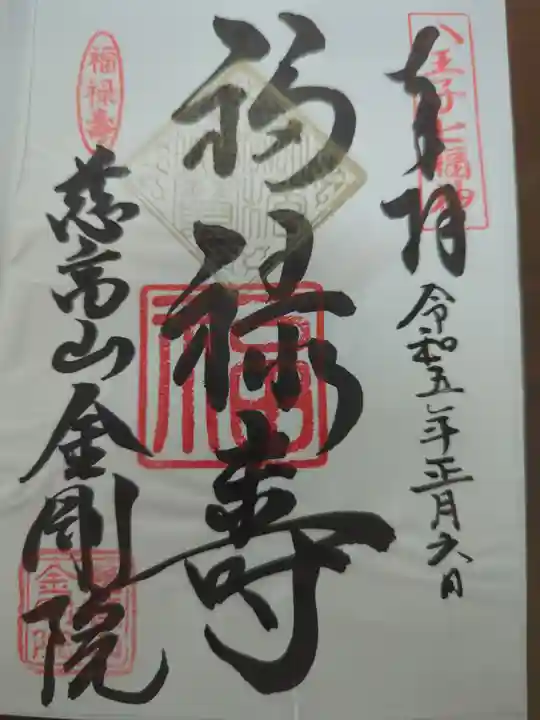 八王子七福神
奉拝
令和五年正月六日
福禄寿
福禄寿
慈高山
金剛院